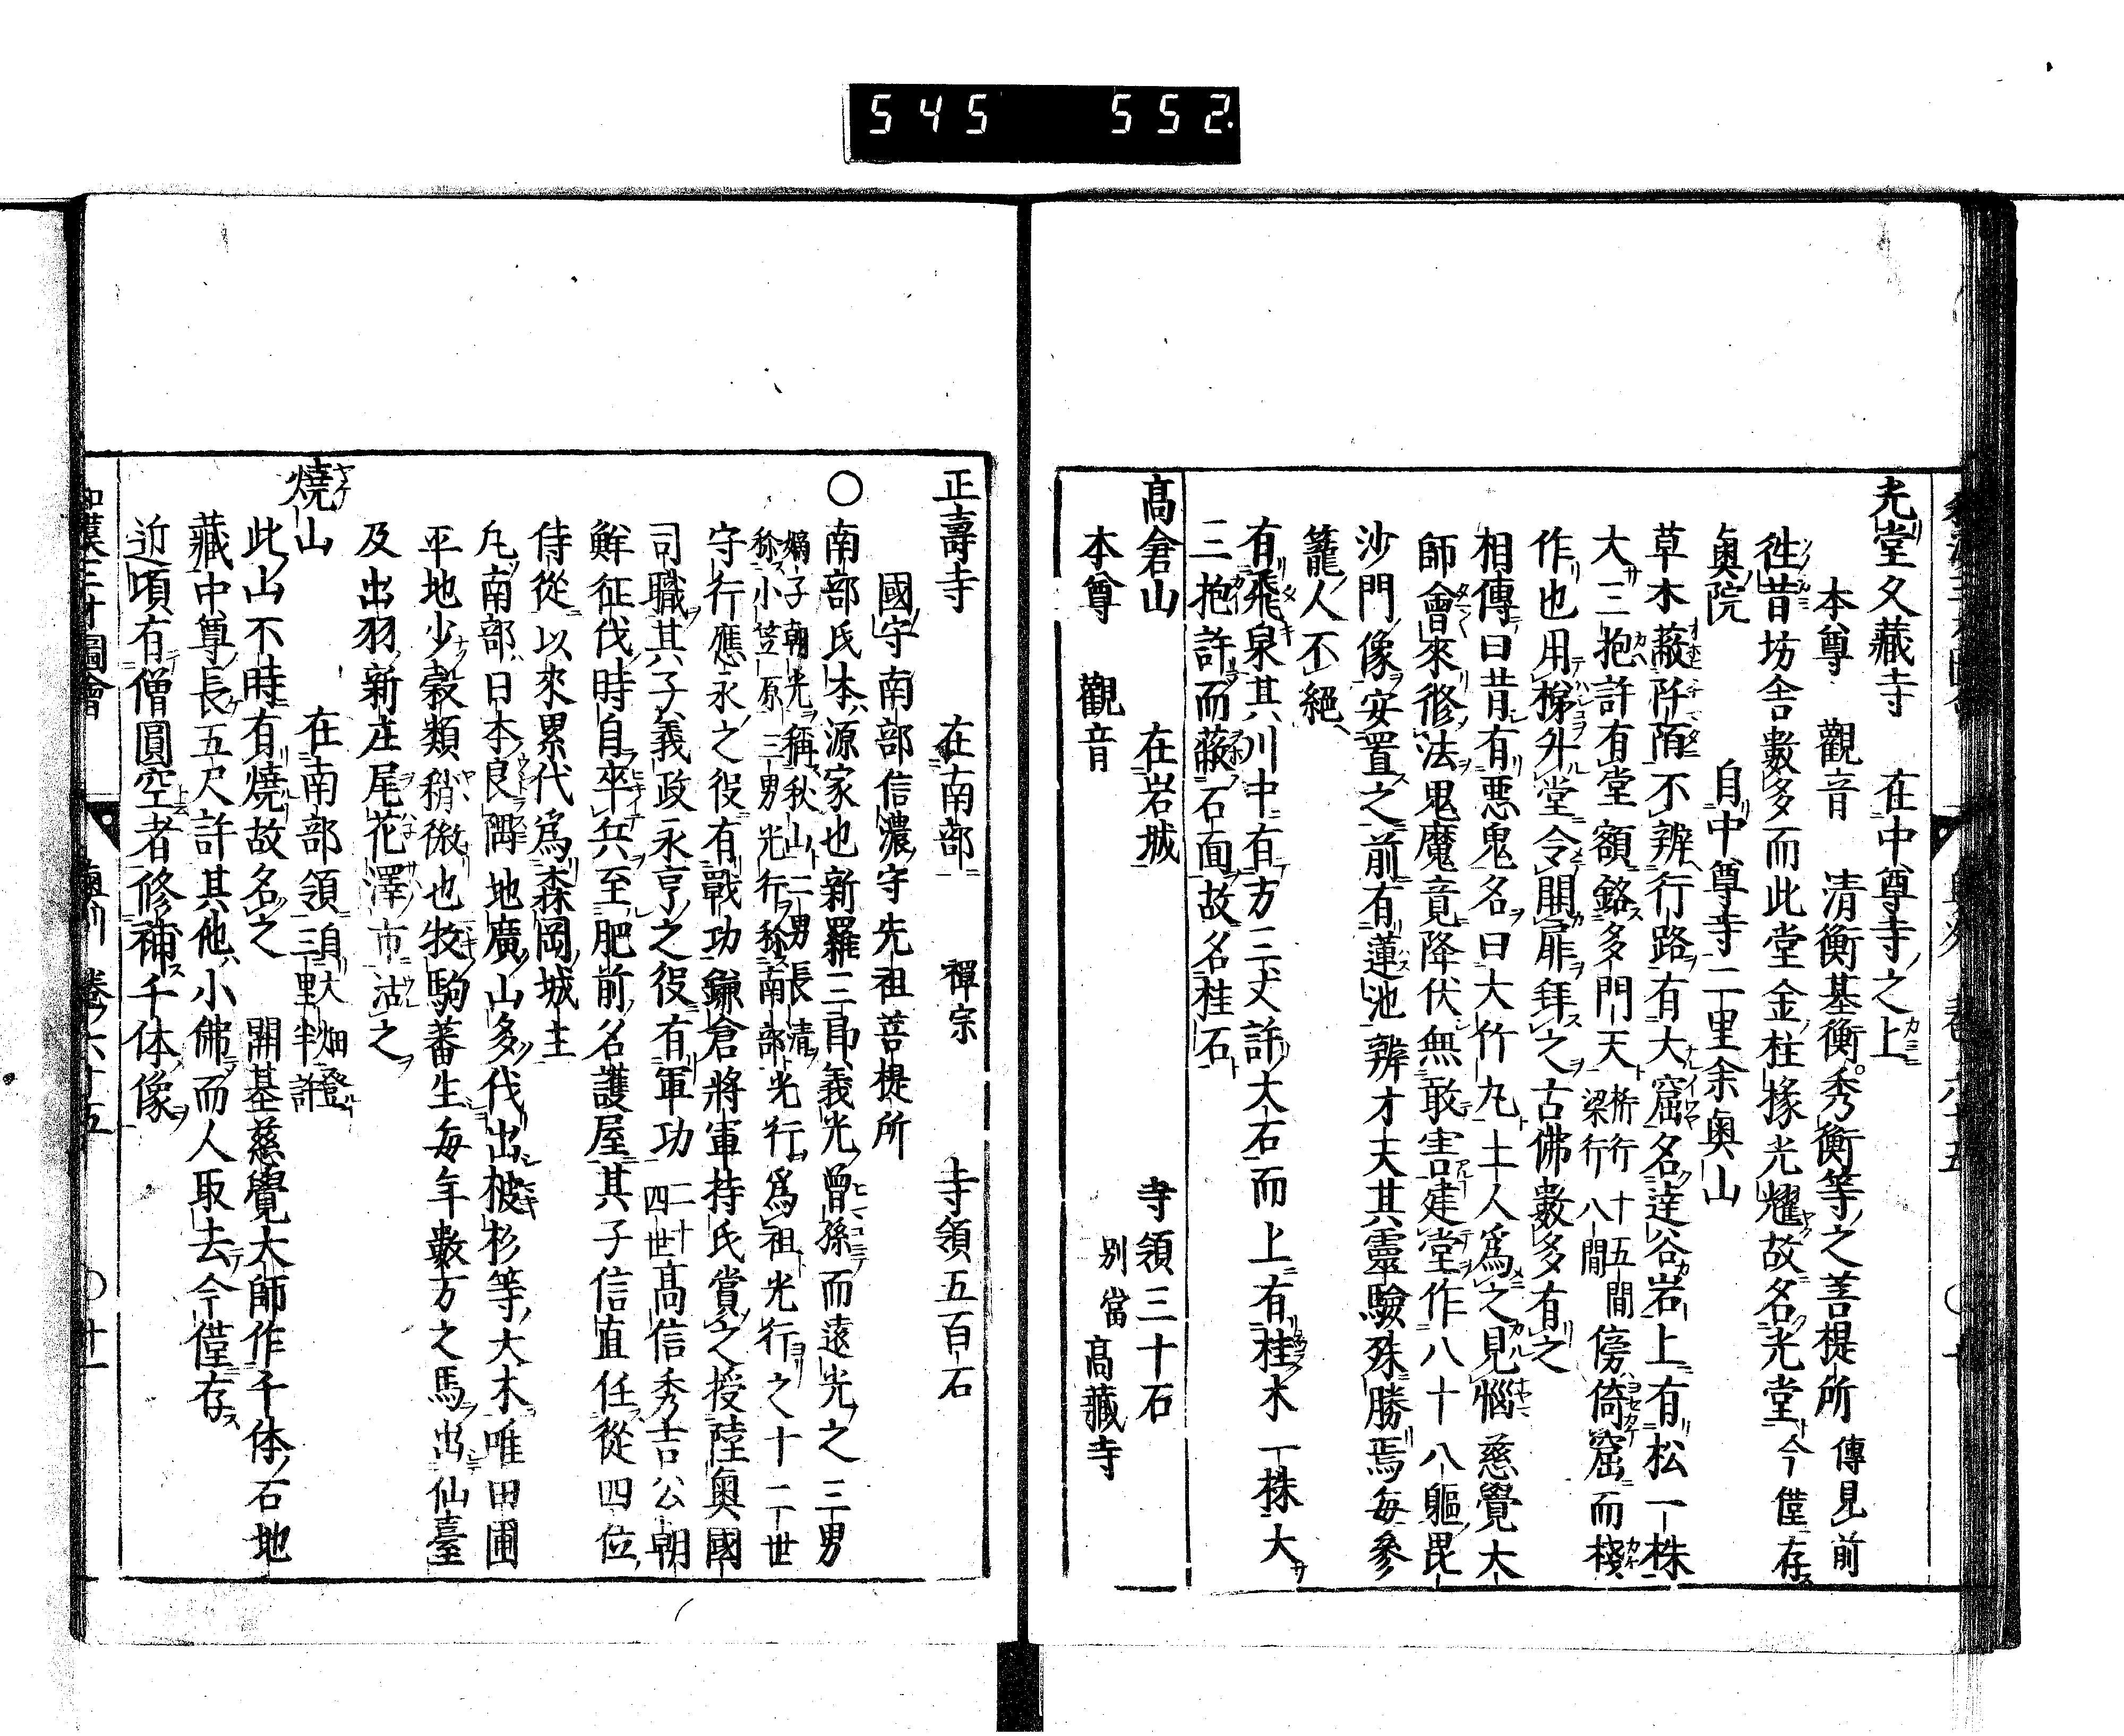 545 552
光堂又藏寺 在中尊寺之上
本尊 觀音 清衡基衡秀衡等之菩提所 傳見前
徃昔坊舍數多而此堂金柱椽光耀故名光堂今僅存
奥院 自中尊寺二里余奥山
草木蔽阡陌不辨行路有大窟名達谷岩上有松一株
大三抱許有堂額銘多門天 桁行十五間 梁行八間 傍倚窟而棧
作也用梯外堂令開扉拜之古佛數多有之
相傳曰昔有惡鬼名曰大竹丸土人爲之見惱慈覺大
師會來修法鬼魔竟降伏無敢害建堂作八十八軀毘
沙門像安置之前有蓮池辨才天其靈驗殊勝焉每參
籠人不絕
有飛泉其川中有方三丈許大石而上有桂木一株大
三抱許而蔽石面故名桂石
高倉山 在岩城 寺領三十石
本尊 觀音 別當 高藏寺
正壽寺 在南部 禪宗 寺領五百石
國守南部信濃守先祖菩提所
○南部氏本源家也新羅三郎義光曾孫而遠光之三男
嫡子朝光稱秋山二男長清
稱小笠原三男光行稱南部光行爲祖光行之十二世
守行應永之役有戰功鎌倉將軍持氏賞之授陸奥國
司職其子義政永亨之役有軍功 二十四世高信秀吉公朝
鮮征伐時自卒兵至肥前名護屋其子信直任從四位
侍從以來累代爲森岡城主
凡南部日本良隅地廣山多代出椴杉等大木唯田圃
平地少穀類稍微也牧駒蕃生每年數万之馬出仙臺
及出羽新庄尾花澤市沽之
燒山 在南部領 自大畑登三里半許
此山不時有燒故名之 開基慈覺大師作千体石地
藏中尊長五尺許其他小佛而人取去今僅存
近頃有僧圓空者修補千体像
和漢三才圖會 奥州 卷六十五 ○廿一